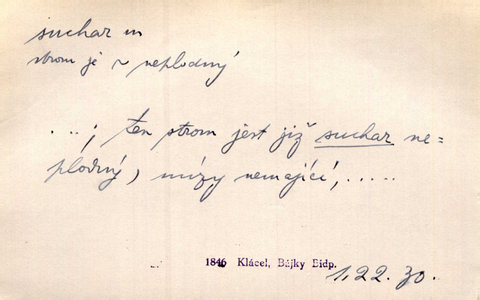 suchar m
strom je ~ neplodný
...; ten strom jest již suchar ne=
plodný, mízy nemající, .....
1846 Klácel, Bájky Bidp.
1,22. 30.